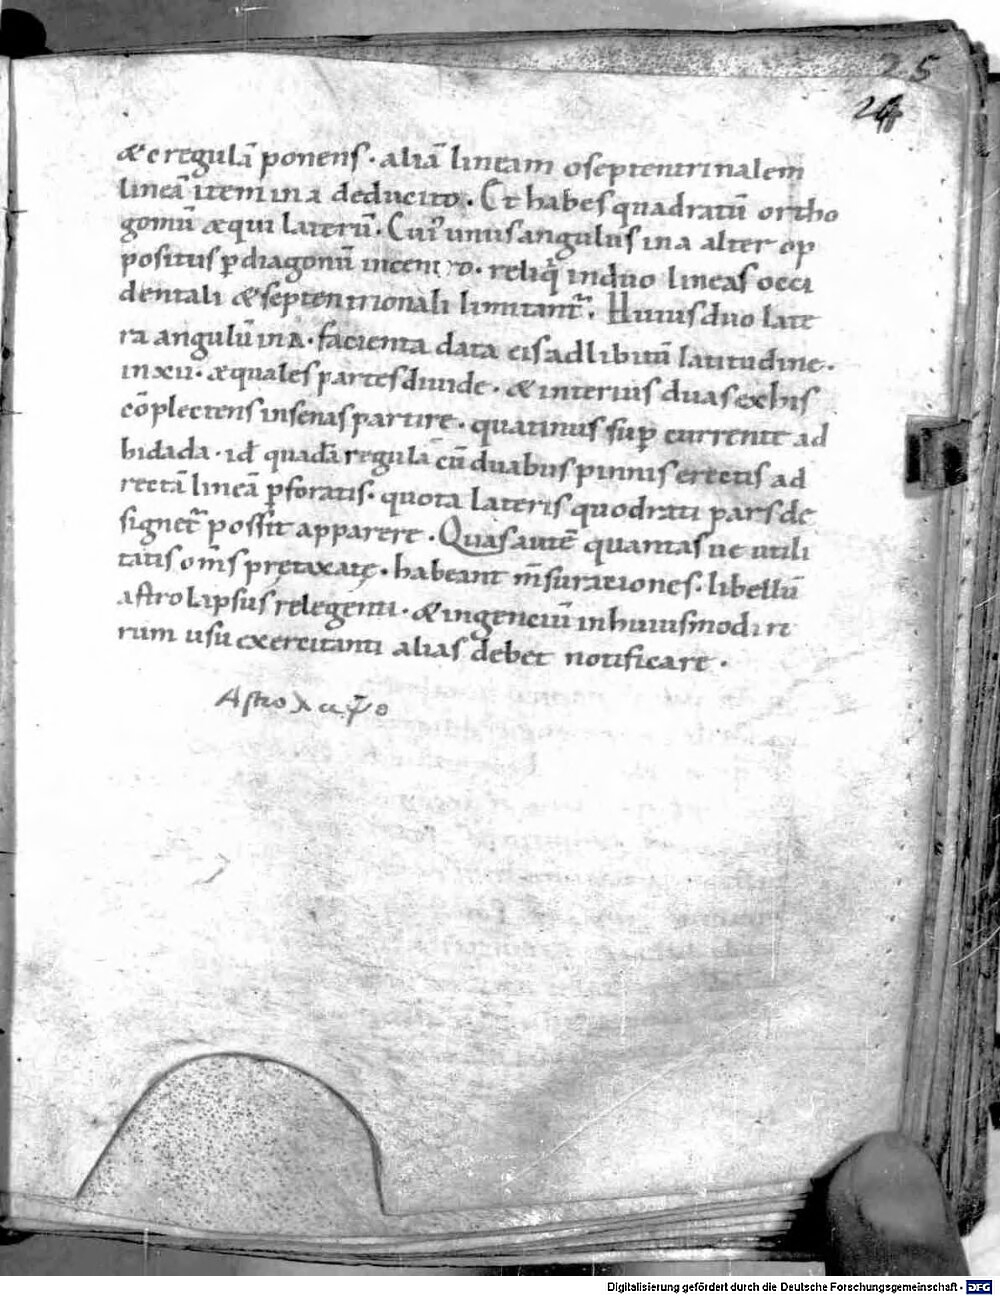 25
24
& c regulā ponens · aliā lineam o septentrinalem
lineā item in a deducito · Et habes quadratū ortho
gomū æqui laterū · Cui' unus angulus in a alter op
positus ꝑ diagonū in centro · reliq̄ in duo lineas occi
dentali & septentrionali limitant᷑ · Huius duo late
ra angulū in A · facienta data eis ad libitū latitudine ·
in xii · æquales partes diuide · & interius duas ex his
cōplectens in senas partire · quatinus suꝑ currente ad
bidada · id ÷ quadā regulā cū duabus pinnis erectis ad
rectā lineā ꝑforatis · quota lateris quodrati pars de
signet᷑ possit apparere · Quas autē quantas ue utili
tatis om̄s prętaxatę · habeant m̄surationes · libellū
astrolapsus relegenti · & ingeniū in huiusmodi re
rum usu exercitanti alias debet notificare ·
Digitalisierung gefördert durch die Deutsche Forschungsgemeinschaft - DFG